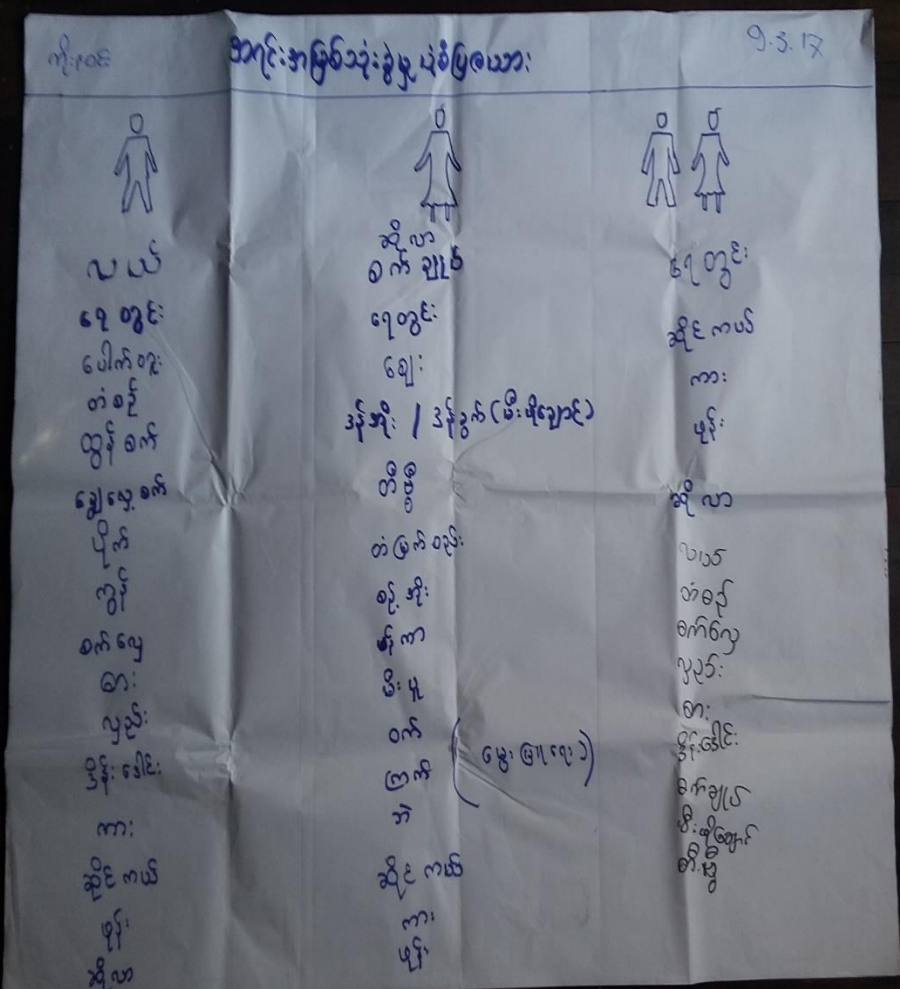 အရင်းအမြစ်သုံးစွဲမှု ပုံစံပြဇယား
9.3.17
လယ်
ရေတွင်း
ပေါက်တူး
တံစဉ်
ထွန်စက်
ချွေလှေ့စက်
ပိုက်
ကွန်
စက်လှေ
ဓား
လှည်း
ဒိန်းဒေါင်း
ကား
ဆိုင်ကယ်
ဖုန်း
ဆိုလာ
ဆိုလာ
စက်ချုပ်
ရေတွင်း
ဈေး
ဒန်အိုး / ဒန်ခွက် (မီးဖိုချောင်)
တီဗွီ
တံမြက်စည်း
စဉ့်အိုး
ပန်ကာ
မီးပူ
ဝက်
ကြက်
ဘဲ
(မွေးမြူရေး)
ဆိုင်ကယ်
ကား
ဖုန်း
ရေတွင်း
ဆိုင်ကယ်
ကား
ဖုန်း
ဆိုလာ
လယ်
တံစဉ်
စက်လှေ
လှည်း
ဓား
ဒိန်းဒေါင်း
စက်ချုပ်
မီးဖိုချောင်
တီဗွီ